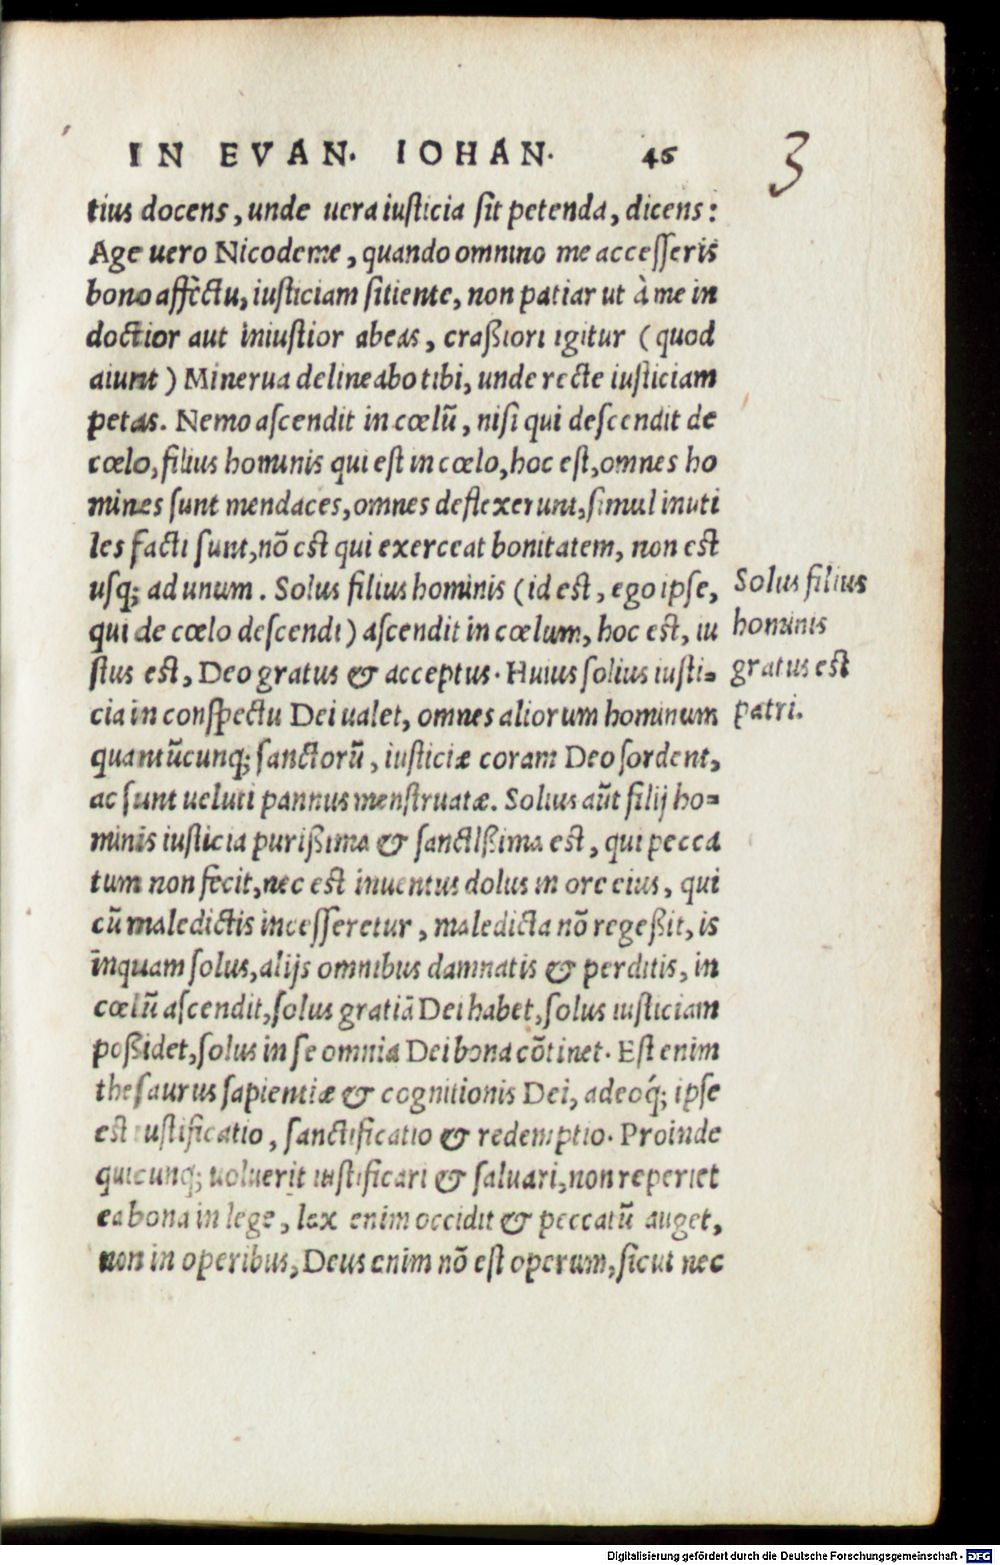 IN EVAN. IOHAN. 46
3
tius docens, unde uera iusticia sit petenda, dicens:
Age uero Nicodeme, quando omnino me accesseris
bono affectu, iusticiam sitiente, non patiar ut à me in
doctior aut iniustior abeas, craßiori igitur (quod
aiunt) Minerua delineabo tibi, unde recte iusticiam
petas. Nemo ascendit in cœlũ, nisi qui descendit de
cœlo, filius hominis qui est in cœlo, hoc est, omnes ho
mines sunt mendaces, omnes deflexerunt, simul inuti
les facti sunt, nõ est qui exerceat bonitatem, non est
usq; ad unum. Solus filius hominis (id est, ego ipse,
qui de cœlo descendi) ascendit in cœlum, hoc est, iu
stus est, Deo gratus & acceptus. Huius solius iusti-
cia in conspectu Dei ualet, omnes aliorum hominum
quantũcunq; sanctorũ, iusticiæ coram Deo sordent,
ac sunt ueluti pannus menstruatæ. Solius aũt filij ho-
minis iusticia purißima & sanctißima est, qui pecca
tum non fecit, nec est inuentus dolus in ore eius, qui
cũ maledictis incesseretur, maledicta nõ regeßit, is
inquam solus, alijs omnibus damnatis & perditis, in
cœlũ ascendit, solus gratiã Dei habet, solus iusticiam
poßidet, solus in se omnia Dei bona cõtinet. Est enim
thesaurus sapientiæ & cognitionis Dei, adeoq́; ipse
est iustificatio, sanctificatio & redemptio. Proinde
quicunq; uoluerit iustificari & saluari, non reperiet
ea bona in lege, lex enim occidit & peccatũ auget,
non in operibus, Deus enim nõ est operum, sicut nec
Solus filius
hominis
gratus est
patri.
Digitalisierung gefördert durch die Deutsche Forschungsgemeinschaft - DFG